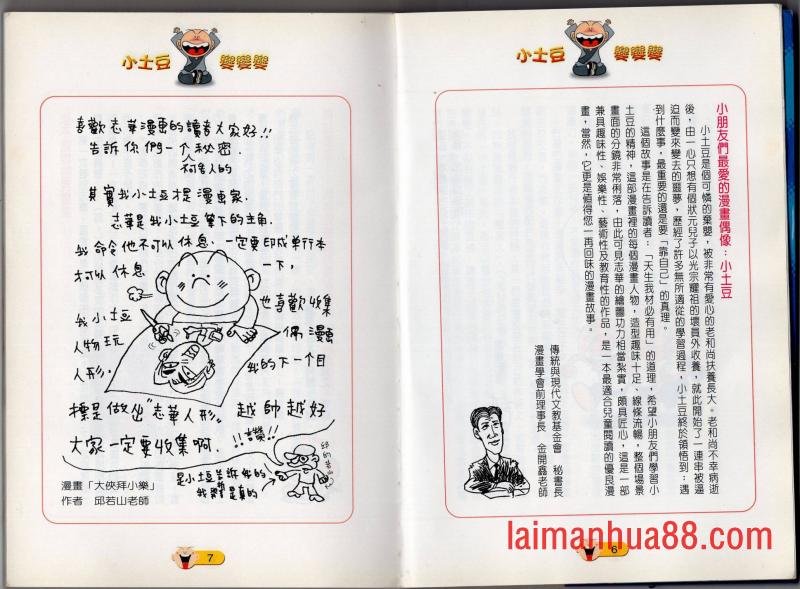 小土豆 變變變
小朋友們最愛的漫畫偶像：小土豆
小土豆是個可憐的棄嬰，被非常有愛心的老和尚扶養長大。老和尚不幸病逝
後，由一心只想有個狀元兒子以光宗耀祖的壞員外收養，就此開始了一連串被逼
迫而變來變去的噩夢，歷經了許多無所適從的學習過程，小土豆終於領悟到：遇
到什麼事，最重要的還是要「靠自己」的真理。
這個故事是在告訴讀者：「天生我材必有用」的道理，希望小朋友們學習小
土豆的精神，這部漫畫裡的每個漫畫人物，造型趣味十足、線條流暢，整個場景
畫面的分鏡非常俐落，由此可見志華的繪圖功力相當紮實，頗具匠心，這是一部
兼具趣味性、娛樂性、藝術性及教育性的作品，是一本最適合兒童閱讀的優良漫
畫，當然，它更是值得您一再回味的漫畫故事。
傳統與現代文教基金會 秘書長
漫畫學會前理事長 金開鑫老師
6
laimanhua88.com
小土豆 變變變
喜歡志華漫画的讀者大家好!!
告訴你們一个秘密.
其實我小土豆才是漫画家.
志華是我小土豆筆下的主角.
我命令他不可以休息、一定要印成單行本
才可以休息一下,
我小土豆也喜歡收集
人物玩偶漫画
人形,我的下一个目
標是做出"志華人形"越帥越好
大家一定要收集啊.!!讚!!
是小土豆告訴他的
我 是真的
漫畫「大俠拜小樂」
作者 邱若山老師
7